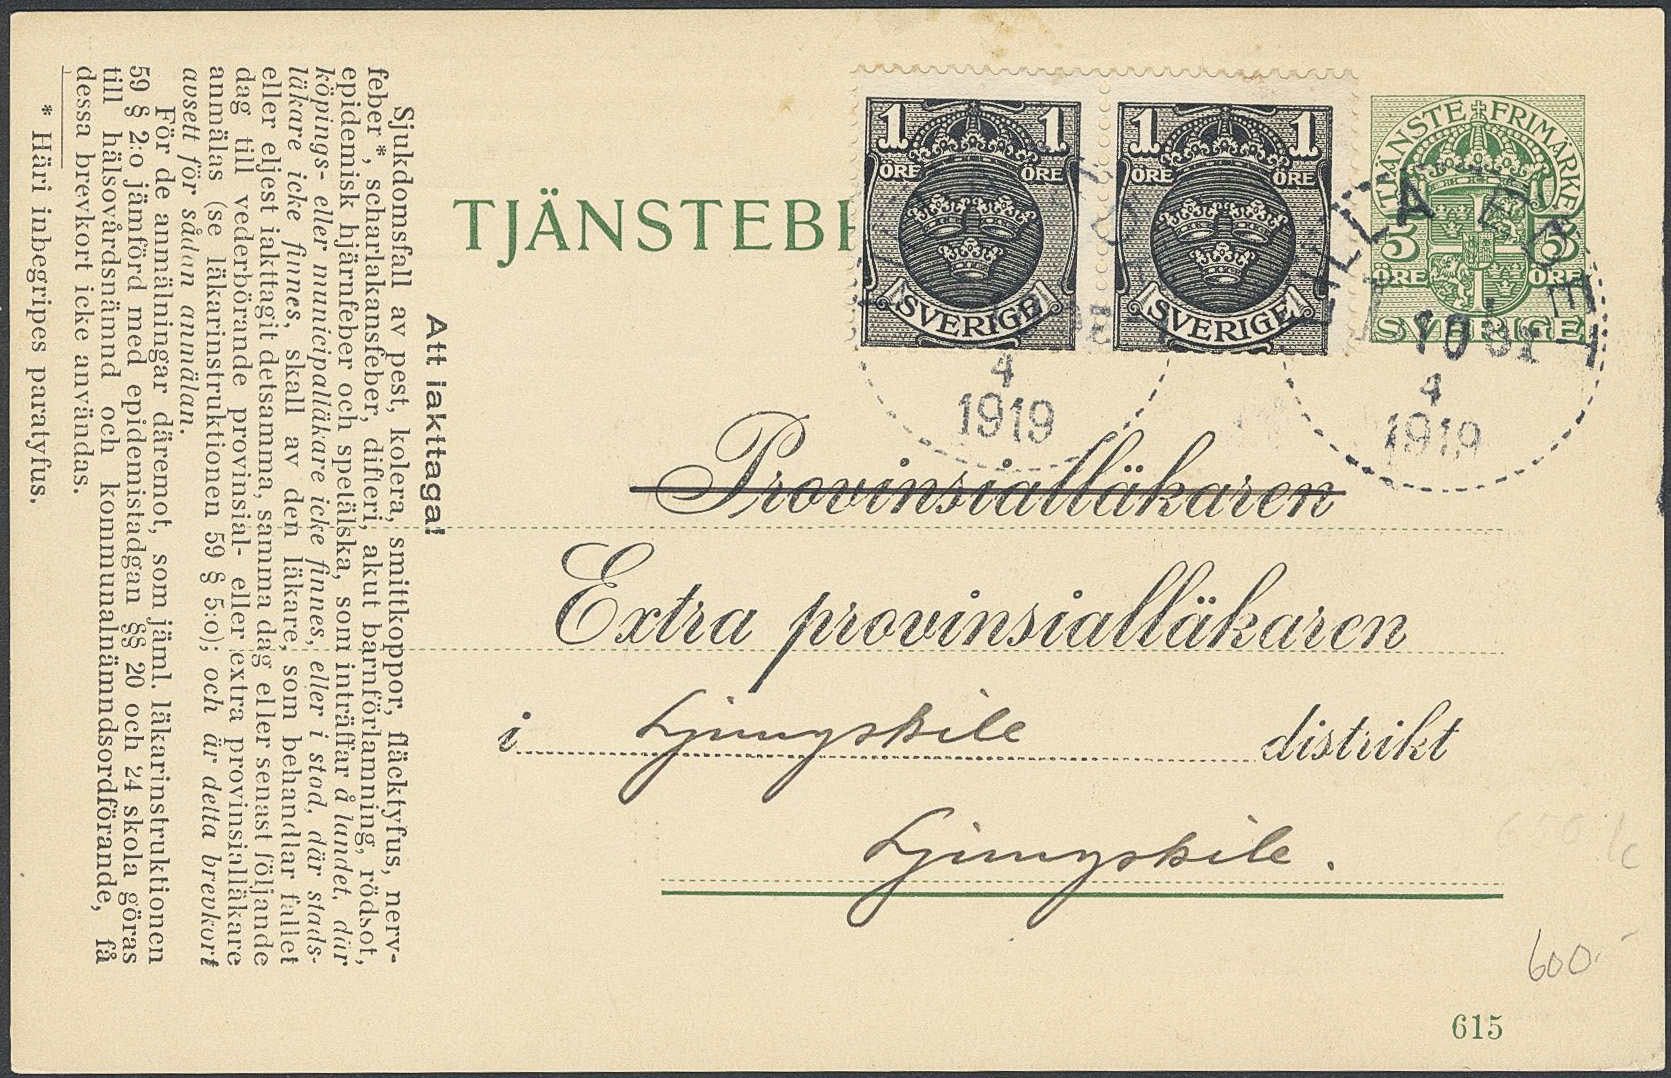 Att iakttaga!
Sjukdomsfall av pest, kolera, smittkoppor, fläcktyfus, nerv-
feber*, scharlakansfeber, difteri, akut barnförlamning, rödsot,
epidemisk hjärnfeber och spetälska, som inträffar å landet, där
köpings- eller municipalläkare icke finnes, eller i stad, där stads-
läkare icke finnes, skall av den läkare, som behandlar fallet
eller eljest iakttagit detsamma, samma dag eller senast följande
dag till vederbörande provinsial- eller extra provinsialläkare
anmälas (se läkarinstruktionen 59 § 5:o); och är detta brevkort
avsett för sådan anmälan.
För de anmälningar däremot, som jäml. läkarinstruktionen
59 § 2:o jämförd med epidemistadgan §§ 20 och 24 skola göras
till hälsovårdsnämnd och kommunalnämndsordförande, få
dessa brevkort icke användas.
* Häri inbegripes paratyfus.
TJÄNSTEB
1 1
ÖRE ÖRE
SVERIGE
1 1
ÖRE ÖRE
SVERIGE
TJÄNSTE FRIMÄRKE
5 5
ÖRE ÖRE
SVERIGE
4
1919
LILLA EDET
10
4
1919
Provinsialläkaren
Extra provinsialläkaren
i Ljungskile distrikt
Ljungskile.
600.-
615